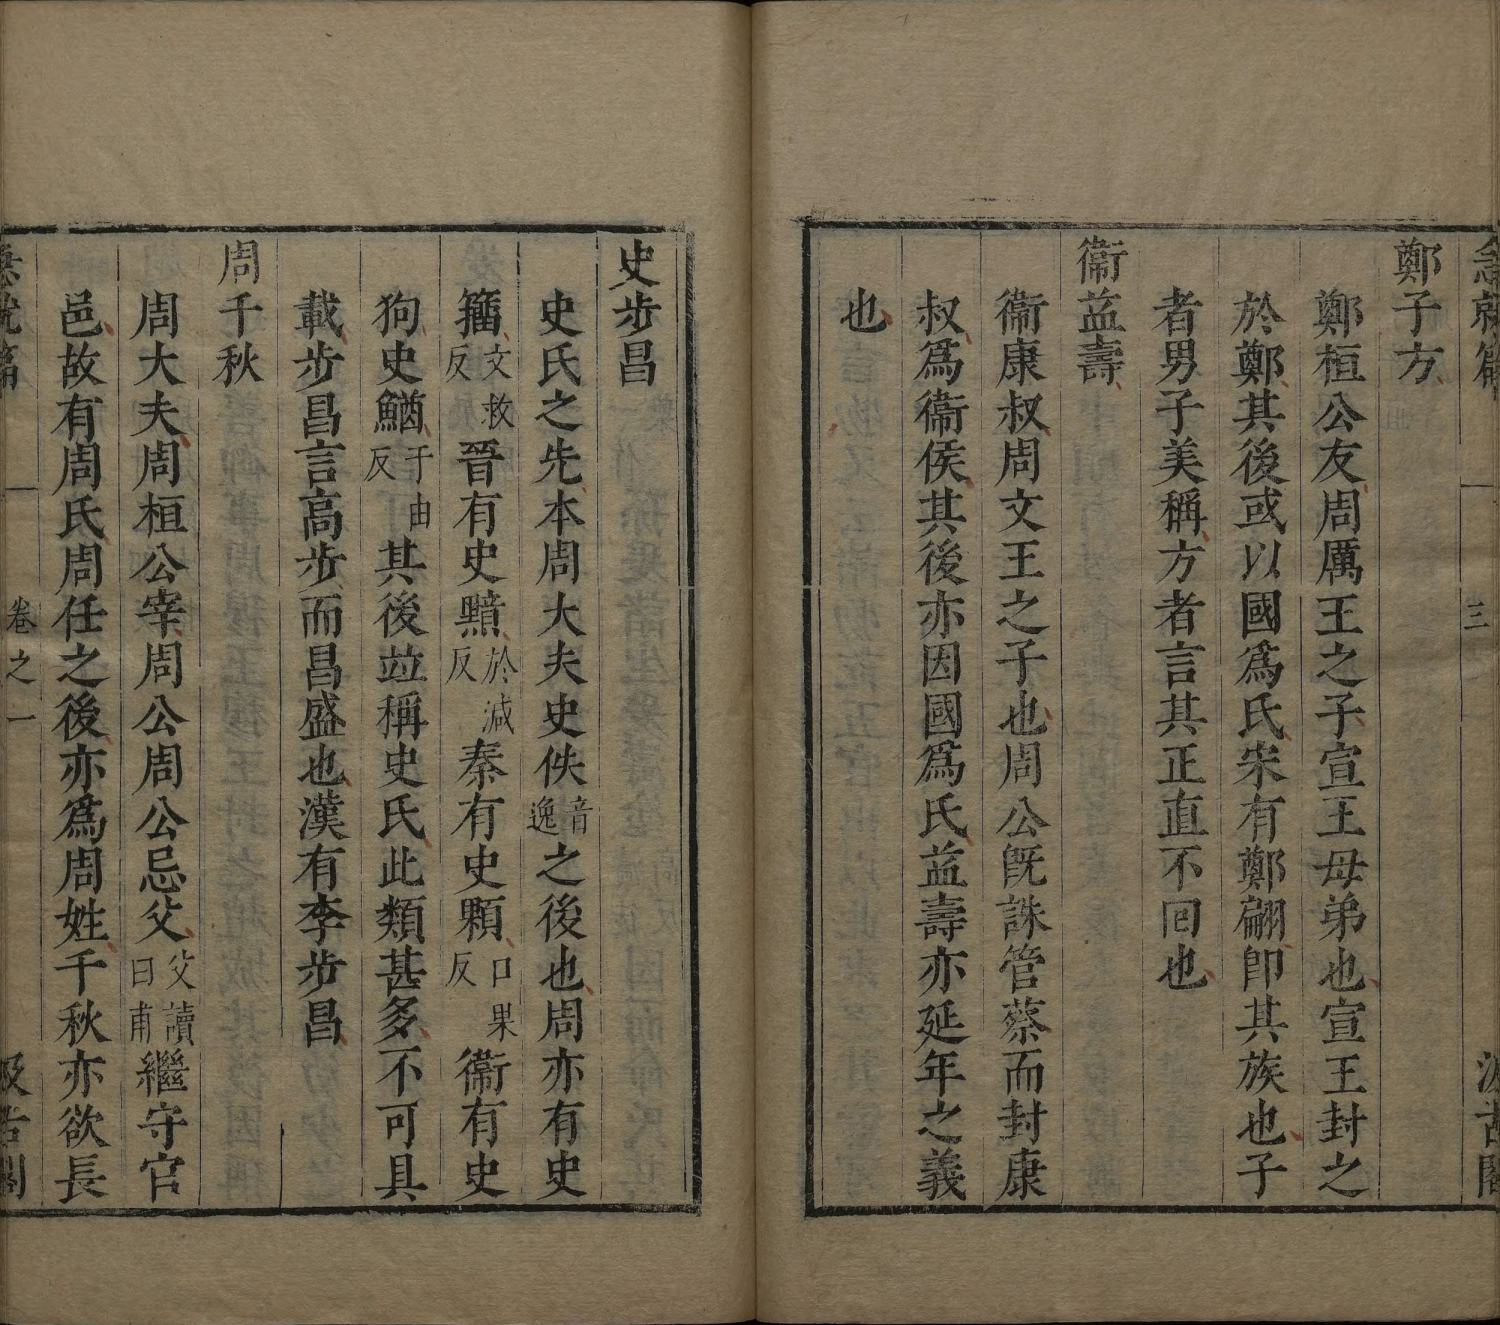 急就篇
三
汲古閣
鄭子方
鄭桓公友周厲王之子宣王母弟也宣王封之
於鄭其後或以國爲氏宋有鄭翩卽其族也子
者男子美稱方者言其正直不回也
衞益壽
衞康叔周文王之子也周公旣誅管蔡而封康
叔爲衞侯其後亦因國爲氏益壽亦延年之義
也
史步昌
史氏之先本周大夫史佚音逸之後也周亦有史
籀文救反晉有史黶於減反秦有史顆口果反衞有史
狗史鰌于由反其後竝稱史氏此類甚多不可具
載步昌言高步而昌盛也漢有李步昌
周千秋
周大夫周桓公宰周公周公忌父父讀曰甫繼守官
邑故有周氏周任之後亦爲周姓千秋亦欲長
急就篇
卷之一
汲古閣